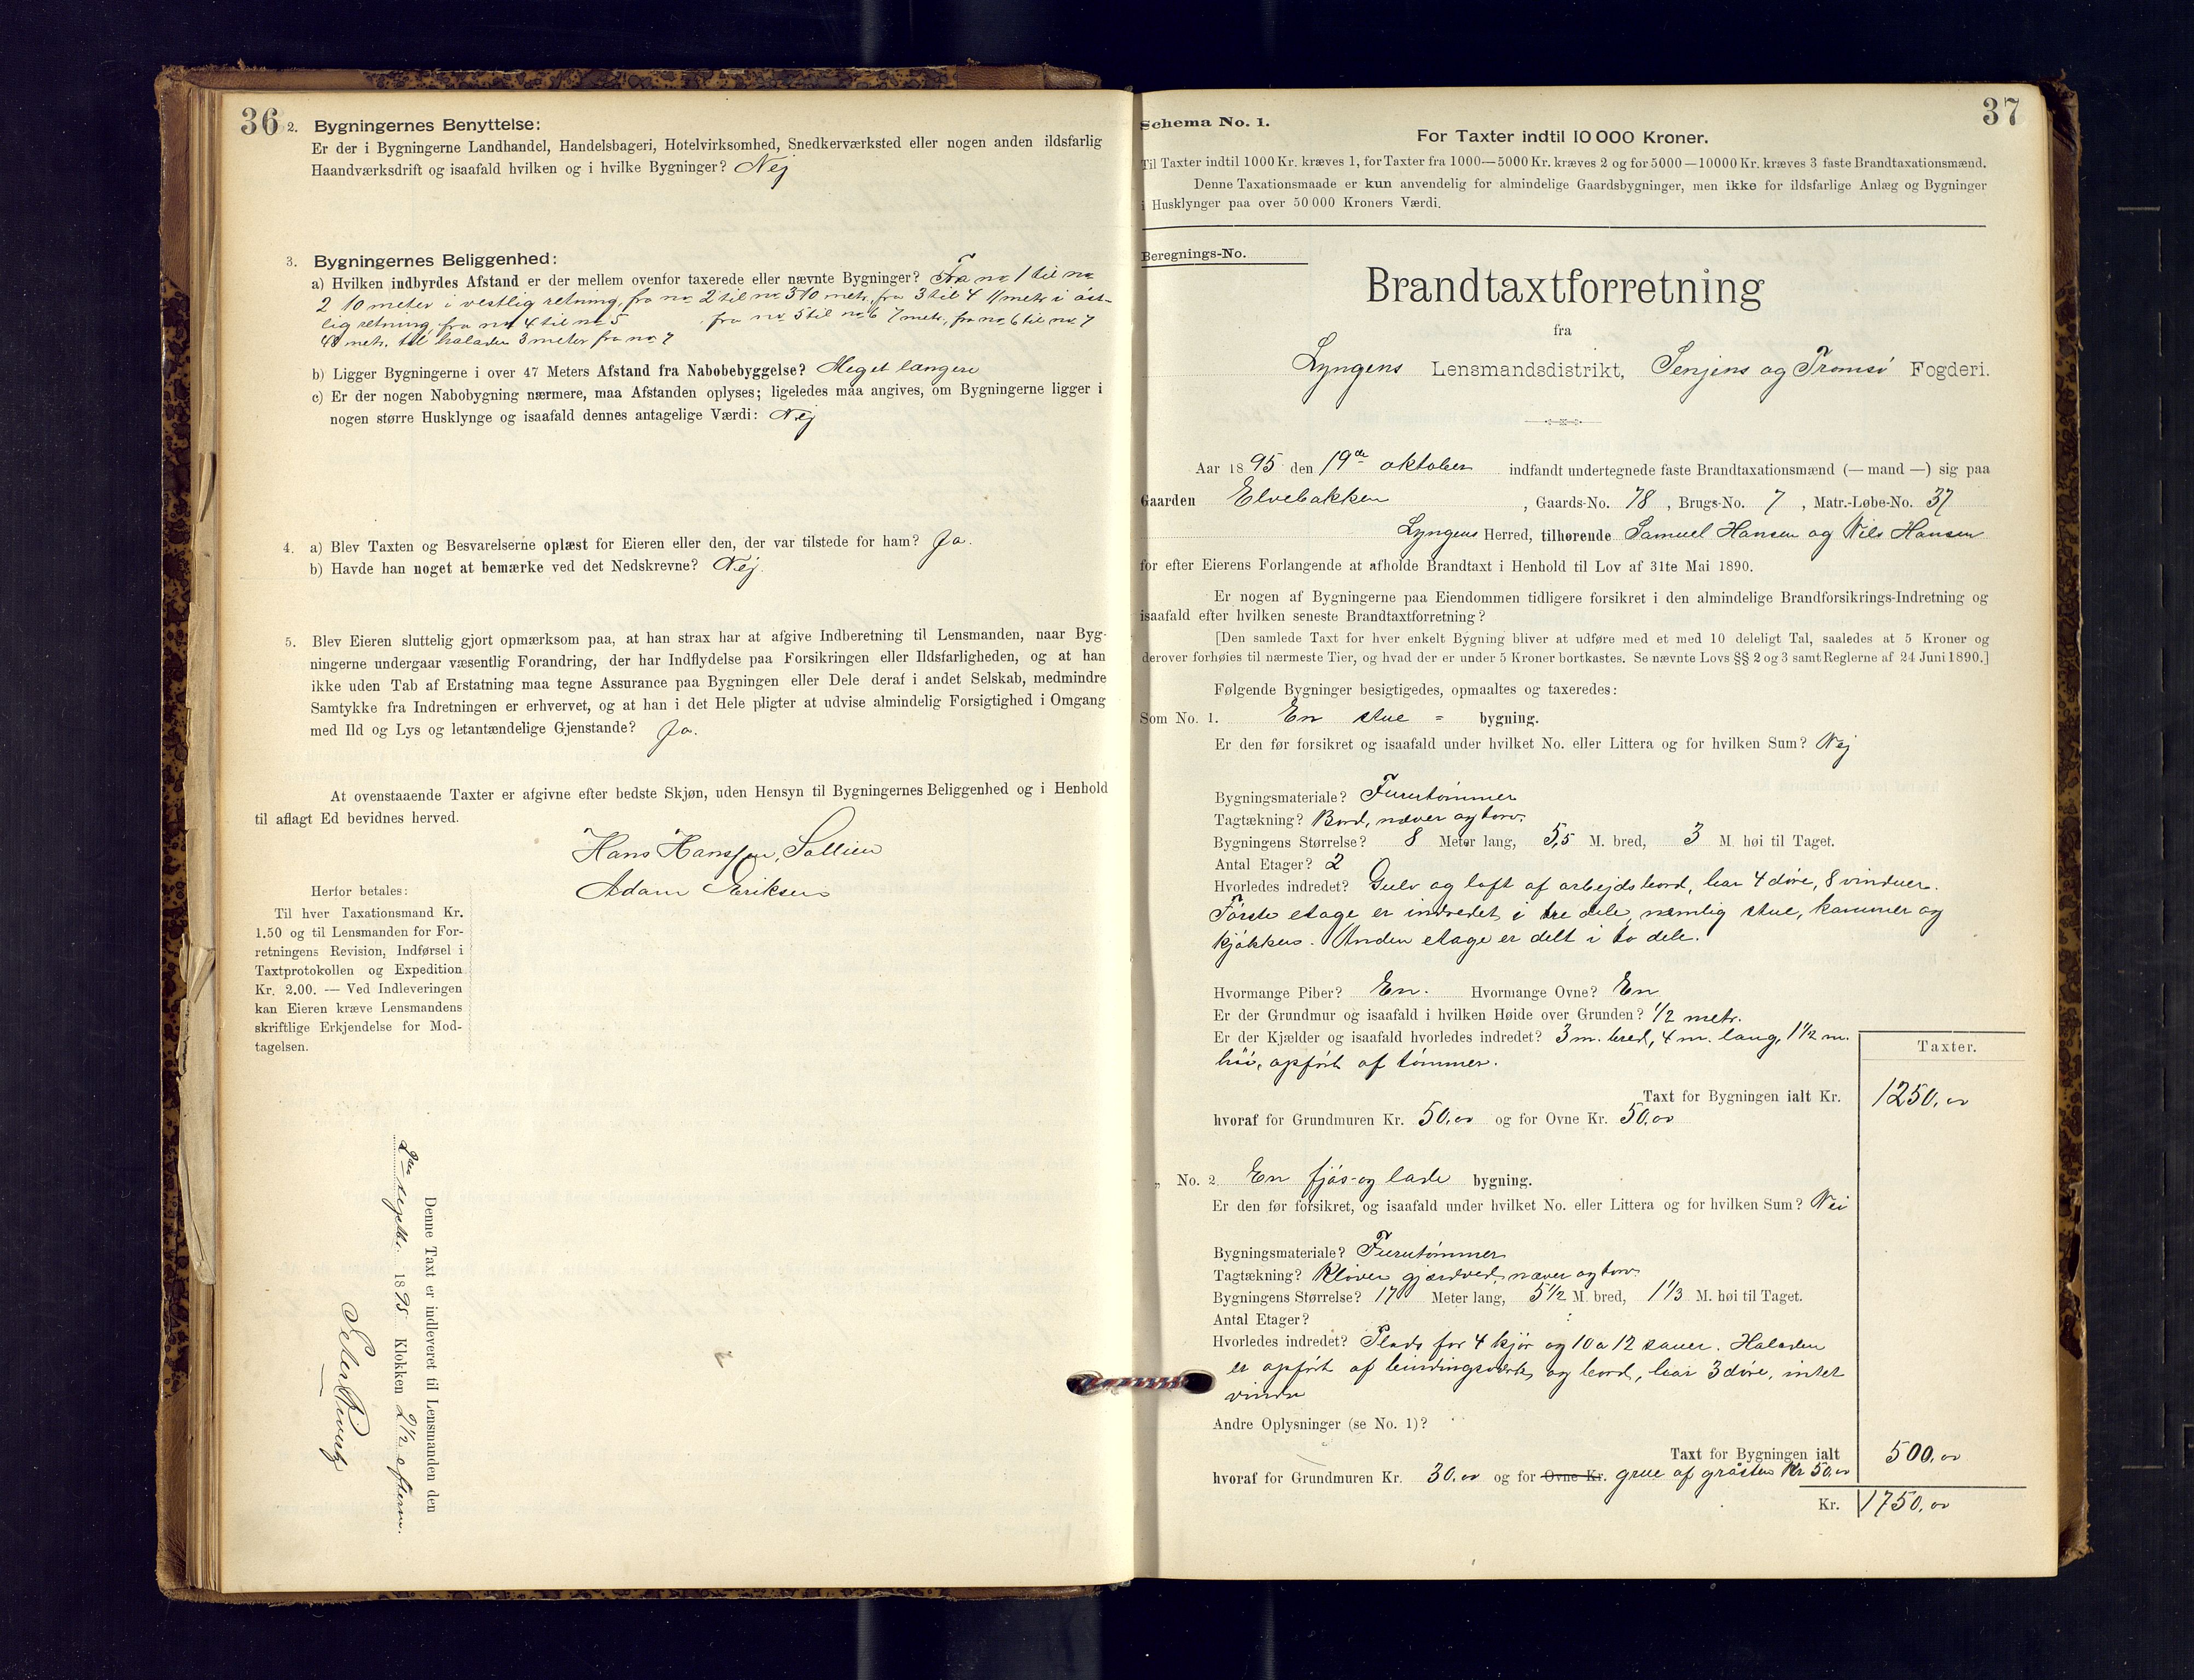 36
2. Bygningernes Benyttelse:
Er der i Bygningerne Landhandel, Handelsbageri, Hotelvirksomhed, Snedkerværksted eller nogen anden ildsfarlig
Haandværksdrift og isaafald hvilken og i hvilke Bygninger? Nej
3. Bygningernes Beliggenhed:
a) Hvilken indbyrdes Afstand er der mellem ovenfor taxerede eller nævnte Bygninger? Fra no 1 til no
2 10 meter i vestlig retning, fra no 2 til no 3 10 metr, fra 3 til 4 11 metr i öst-
lig retning, fra no 4 til no 5 fra no 5 til no 6 7 metr, fra no 6 til no 7
40 metr. til halader 3 meter fra no 7
b) Ligger Bygningerne i over 47 Meters Afstand fra Nabobebyggelse? Meget længere
c) Er der nogen Nabobygning nærmere, maa Afstanden oplyses; ligeledes maa angives, om Bygningerne ligger i
nogen større Husklynge og isaafald dennes antagelige Værdi: Nej
4. a) Blev Taxten og Besvarelserne oplæst for Eieren eller den, der var tilstede for ham? Ja.
b) Havde han noget at bemærke ved det Nedskrevne? Nej.
5. Blev Eieren sluttelig gjort opmærksom paa, at han strax har at afgive Indberetning til Lensmanden, naar Byg-
ningerne undergaar væsentlig Forandring, der har Indflydelse paa Forsikringen eller Ildsfarligheden, og at han
ikke uden Tab af Erstatning maa tegne Assurance paa Bygningen eller Dele deraf i andet Selskab, medmindre
Samtykke fra Indretningen er erhvervet, og at han i det Hele pligter at udvise almindelig Forsigtighed i Omgang
med Ild og Lys og letantændelige Gjenstande? Ja.
At ovenstaaende Taxter er afgivne efter bedste Skjøn, uden Hensyn til Bygningernes Beliggenhed og i Henhold
til aflagt Ed bevidnes herved.
Hans Hanssen, Sollien
Adam Eriksen
Herfor betales:
Til hver Taxationsmand Kr.
1.50 og til Lensmanden for For-
retningens Revision, Indførsel i
Taxtprotokollen og Expedition
Kr. 2.00. — Ved Indleveringen
kan Eieren kræve Lensmandens
skriftlige Erkjendelse for Mod-
tagelsen.
Denne Taxt er indleveret til Lensmanden den
2den 1895 Klokken 2½ efterm.
Peter
37
Schema No. 1.
For Taxter indtil 10 000 Kroner.
Til Taxter indtil 1000 Kr. kræves 1, for Taxter fra 1000—5000 Kr. kræves 2 og for 5000—10000 Kr. kræves 3 faste Brandtaxationsmænd.
Denne Taxationsmaade er kun anvendelig for almindelige Gaardsbygninger, men ikke for ildsfarlige Anlæg og Bygninger
i Husklynger paa over 50 000 Kroners Værdi.
Beregnings-No.
Brandtaxtforretning
fra
Lyngens Lensmandsdistrikt, Senjens og Tromsö Fogderi.
Aar 1895 den 19de oktober indfandt undertegnede faste Brandtaxationsmænd (— mand —) sig paa
Gaarden Elvebakken, Gaards-No. 78, Brugs-No. 7, Matr.-Løbe-No. 37
Lyngens Herred, tilhørende Samuel Hansen og Nils Hansen
for efter Eierens Forlangende at afholde Brandtaxt i Henhold til Lov af 31te Mai 1890.
Er nogen af Bygningerne paa Eiendommen tidligere forsikret i den almindelige Brandforsikrings-Indretning og
isaafald efter hvilken seneste Brandtaxtforretning?
[Den samlede Taxt for hver enkelt Bygning bliver at udføre med et med 10 deleligt Tal, saaledes at 5 Kroner og
derover forhøies til nærmeste Tier, og hvad der er under 5 Kroner bortkastes. Se nævnte Lovs §§ 2 og 3 samt Reglerne af 24 Juni 1890.]
Følgende Bygninger besigtigedes, opmaaltes og taxeredes:
Som No. 1. En stue = bygning.
Er den før forsikret og isaafald under hvilket No. eller Littera og for hvilken Sum? Nej
Bygningsmateriale? Furutömmer
Tagtækning? Bord, næver og torv.
Bygningens Størrelse? 8 Meter lang, 5,5 M. bred, 3 M. høi til Taget.
Antal Etager? 2
Hvorledes indredet? Gulv og loft af arbejdsbord, har 4 döre, 8 vinduer.
Förste etage er indredet i tre dele, nemlig stue, kammer og
kjökken. Anden etage er delt i to dele.
Hvormange Piber? En. Hvormange Ovne? En
Er der Grundmur og isaafald i hvilken Høide over Grunden? 1/2 metr.
Er der Kjælder og isaafald hvorledes indredet? 3 m. bred, 4 m. lang, 1½ m.
höi, opfört af tömmer.
Taxter.
Taxt for Bygningen ialt Kr. 1250,00
hvoraf for Grundmuren Kr. 50,00 og for Ovne Kr. 50,00
„ No. 2 En fjös- og lade bygning.
Er den før forsikret, og isaafald under hvilket No. eller Littera og for hvilken Sum? Nei
Bygningsmateriale? Furutömmer
Tagtækning? Klöver gjærdved, næver og torv.
Bygningens Størrelse? 17 Meter lang, 5½ M. bred, 1⅓ M. høi til Taget.
Antal Etager?
Hvorledes indredet? Plads for 4 kjör og 10 a 12 sauer. Haladen
er opfört af bindingsverk og bord, har 3 döre, intet
vindu
Andre Oplysninger (se No. 1)?
Taxt for Bygningen ialt 500,00
hvoraf for Grundmuren Kr. 30,00 og for Ovne Kr. grue af gråsten Kr 50,00
Kr. 1750,00